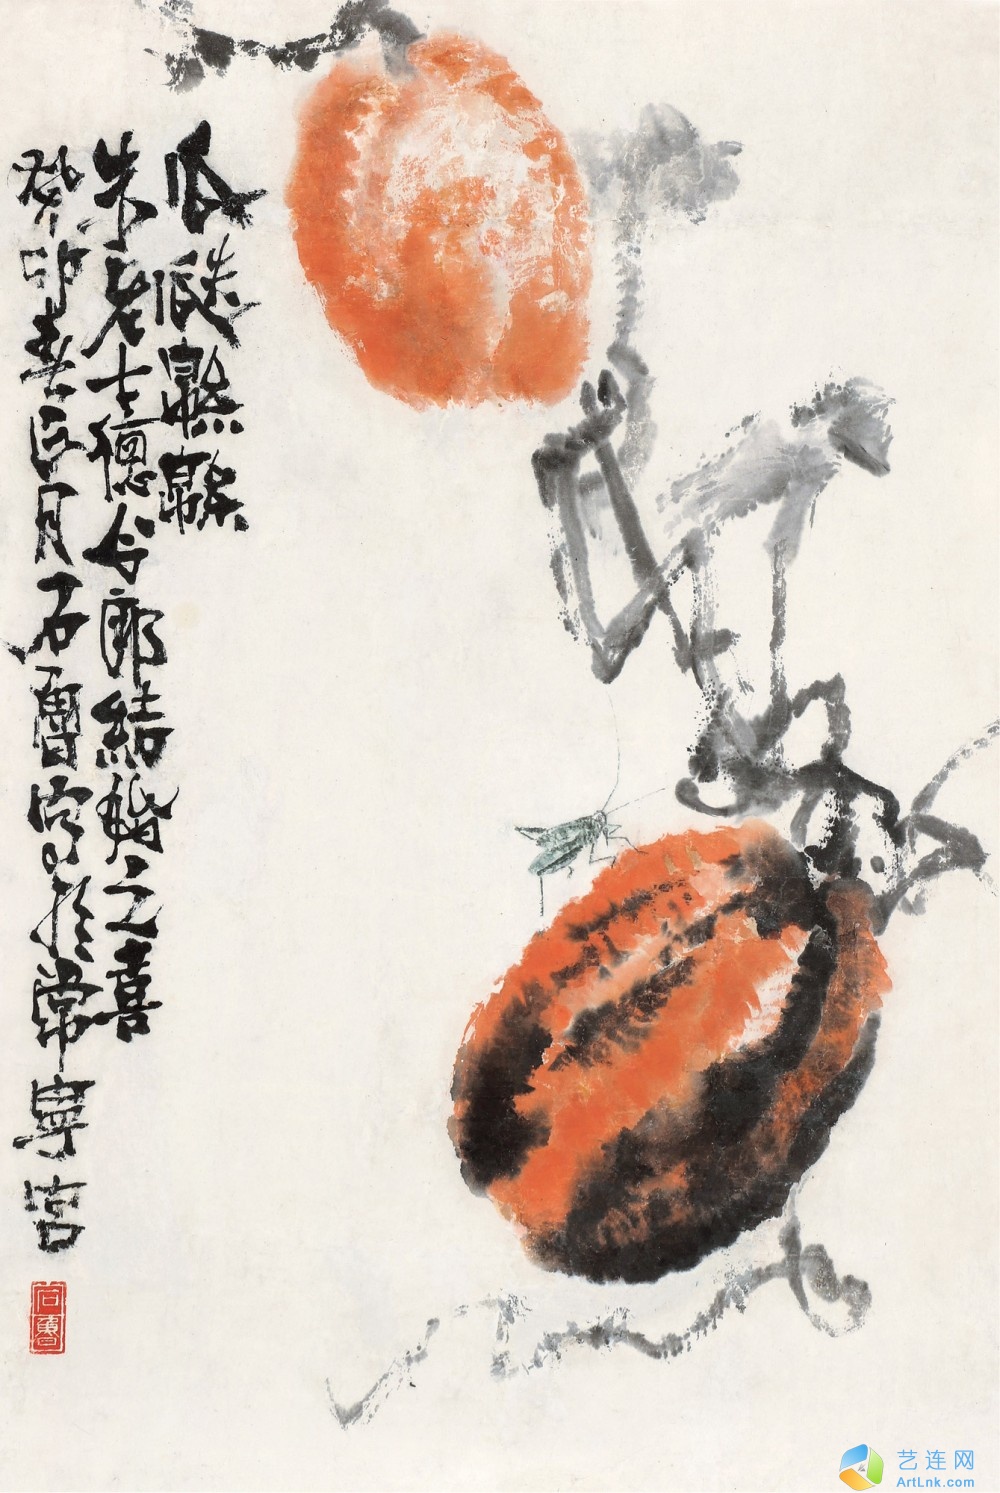 瓜瓞緜緜
朱老士德令郎結婚之喜
癸卯春正月石魯写於常寧宮
石魯
艺连网
ArtLnk.com